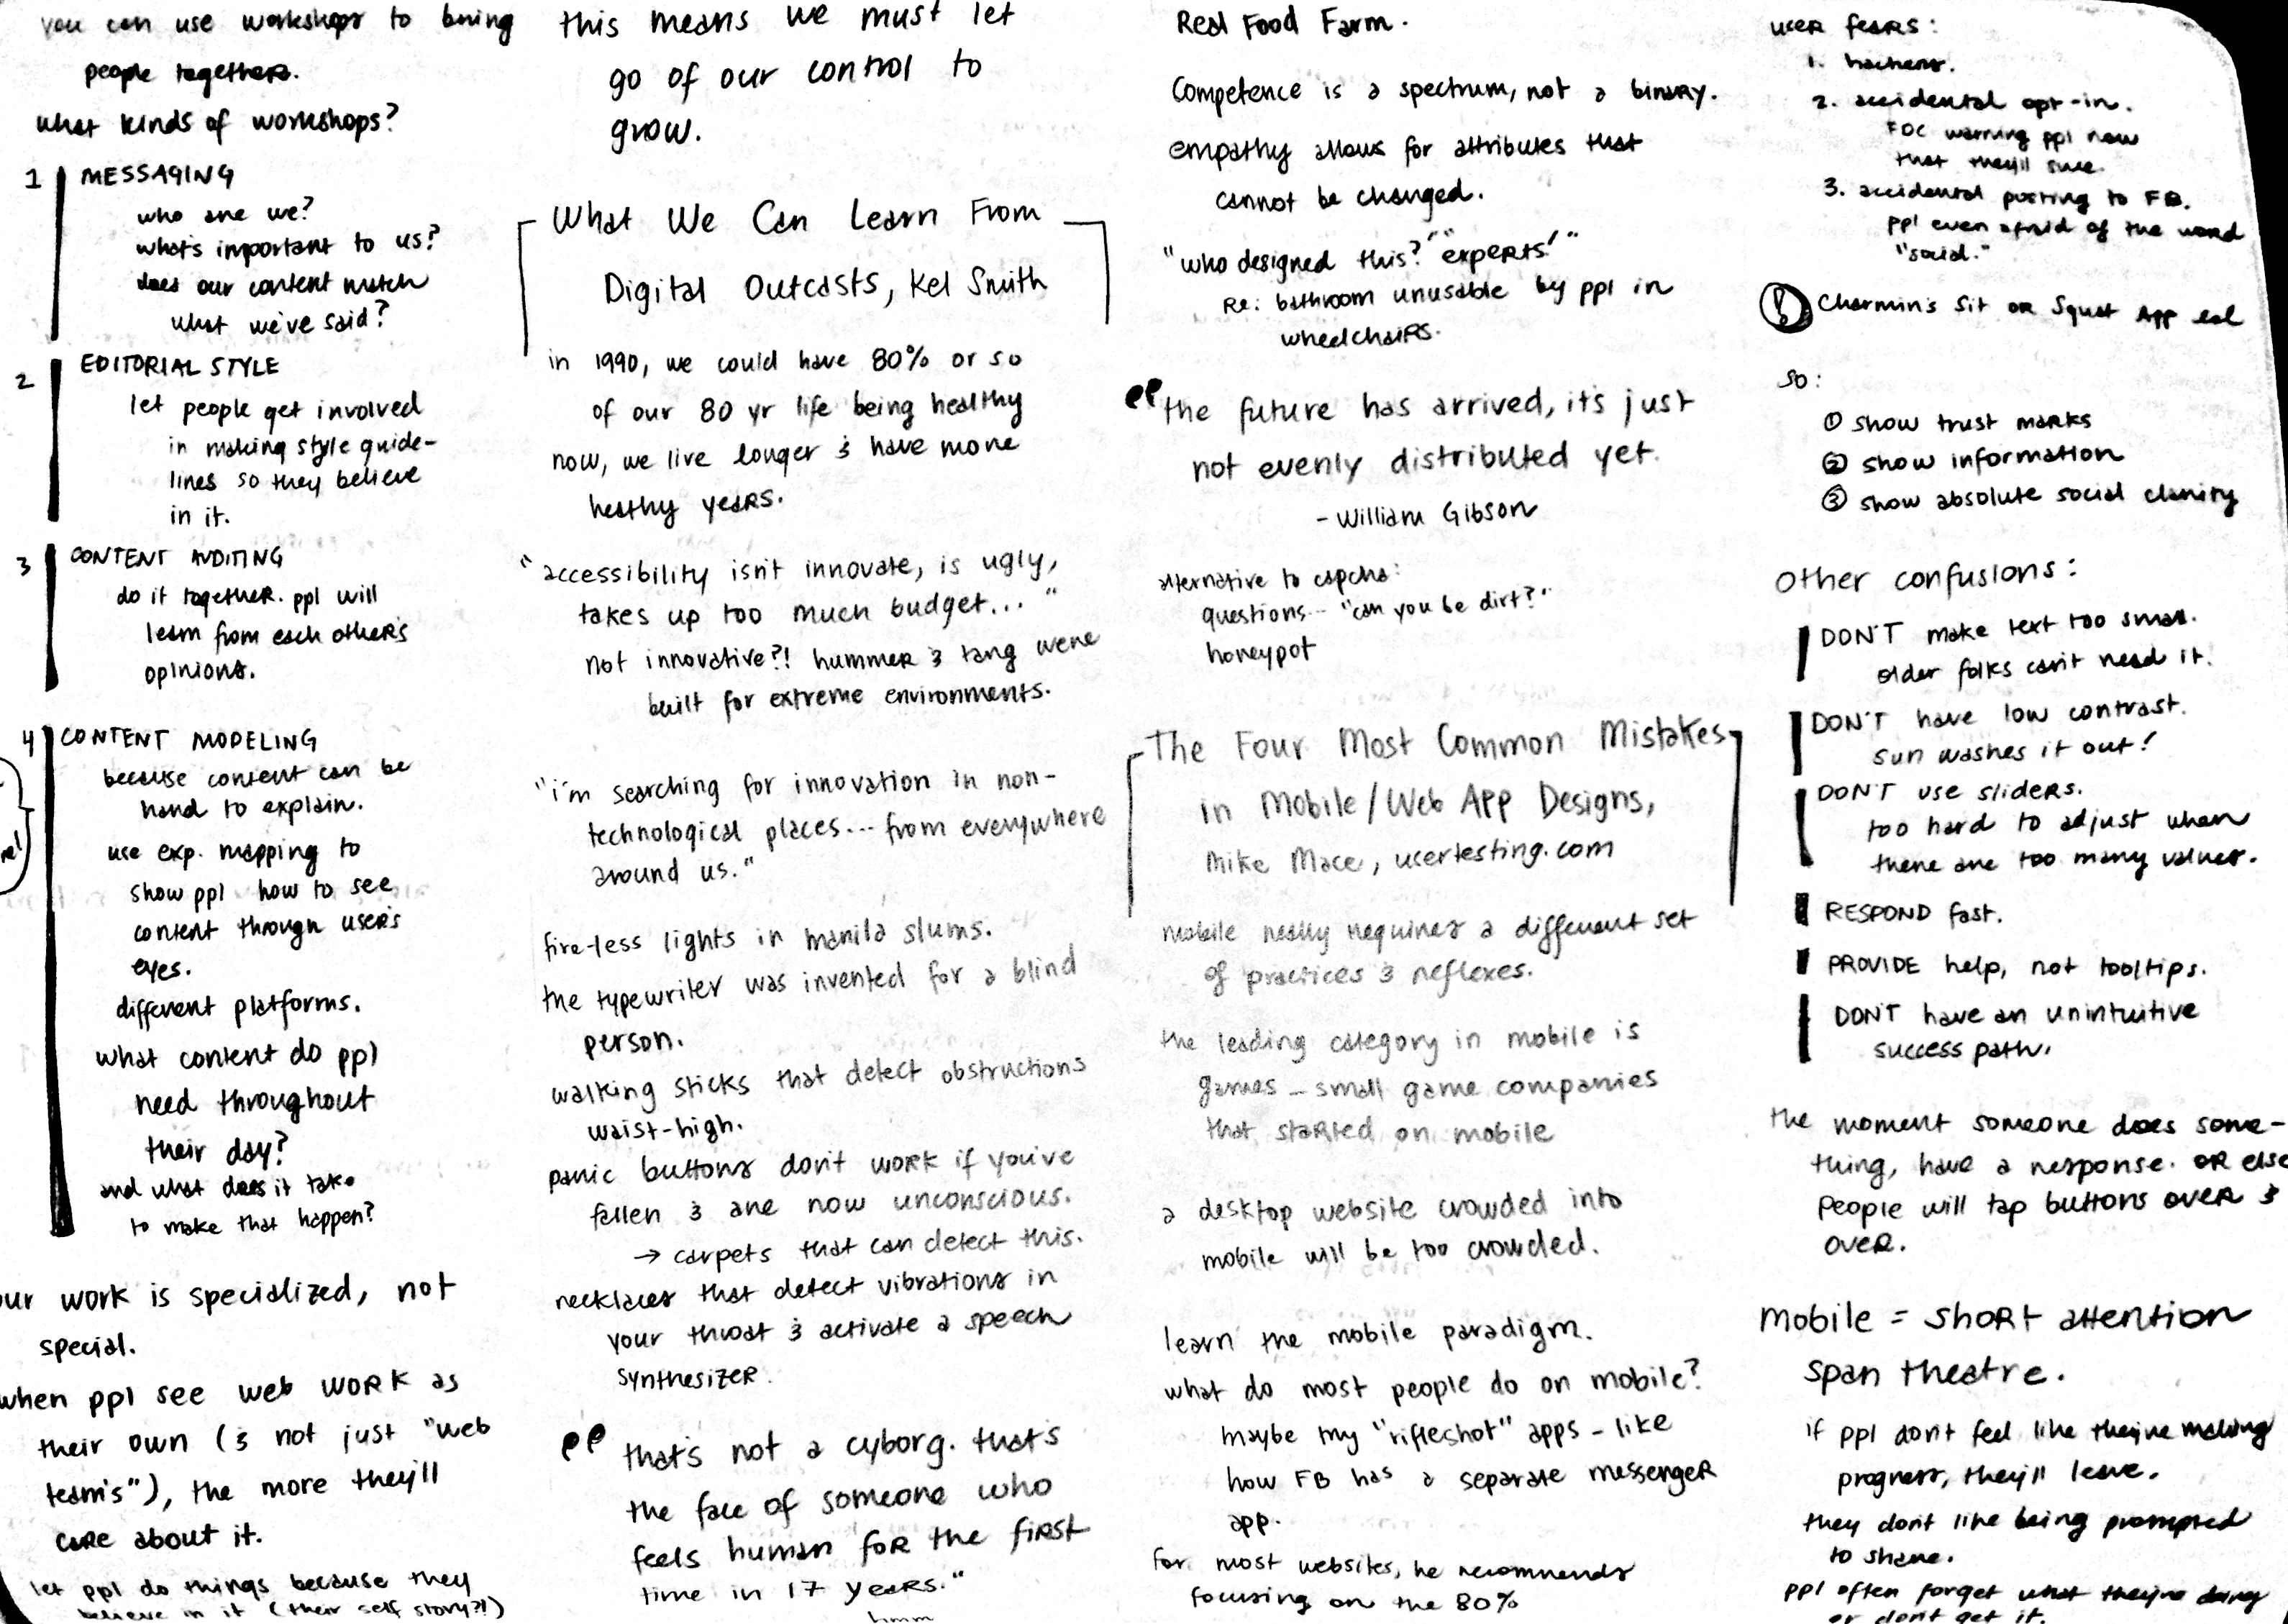 you can use workshops to bring
people together.
what kinds of workshops?
1 MESSAGING
who are we?
what's important to us?
does our content match
what we've said?
2 EDITORIAL STYLE
let people get involved
in making style guide-
lines so they believe
in it.
3 CONTENT AUDITING
do it together. ppl will
learn from each other's
opinions.
4 CONTENT MODELING
because content can be
hard to explain.
use exp. mapping to
show ppl how to see
content through user's
eyes.
different platforms.
what content do ppl
need throughout
their day?
and what does it take
to make that happen?
our work is specialized, not
special.
when ppl see web work as
their own (& not just "web
team's"), the more they'll
care about it.
let ppl do things because they
believe in it (their self story?!)
this means we must let
go of our control to
grow.
What We Can Learn From
Digital Outcasts, Kel Smith
in 1990, we could have 80% or so
of our 80 yr life being healthy
now, we live longer & have more
healthy years.
"accessibility isn't innovate, is ugly,
takes up too much budget..."
not innovative?! hummer & tang were
built for extreme environments.
"i'm searching for innovation in non-
technological places... from everywhere
around us."
fire-less lights in manila slums.
the typewriter was invented for a blind
person.
walking sticks that detect obstructions
waist-high.
panic buttons don't work if you've
fallen & are now unconscious.
→ carpets that can detect this.
necklaces that detect vibrations in
your throat & activate a speech
synthesizer.
"that's not a cyborg. that's
the face of someone who
feels human for the first
time in 17 years."
hmm
Real Food Farm.
Competence is a spectrum, not a binary.
empathy allows for attributes that
cannot be changed.
"who designed this?" "experts!"
Re: bathroom unusable by ppl in
wheelchairs.
"the future has arrived, it's just
not evenly distributed yet.
- William Gibson
alternative to capcha:
questions... "can you be dirt?"
honeypot
The Four Most Common Mistakes
in Mobile/Web App Designs,
Mike Mace, usertesting.com
mobile really requires a different set
of practices & reflexes.
the leading category in mobile is
games - small game companies
that started on mobile
a desktop website crowded into
mobile will be too crowded.
learn the mobile paradigm.
what do most people do on mobile?
maybe try "rifleshot" apps - like
how FB has a separate messenger
app.
for most websites, he recommends
focusing on the 80%
user fears:
1. hackers.
2. accidental opt-in.
warning ppl now
that they'll
3. accidental posting to FB.
ppl even afraid of the word
"social."
Charmin's Sit or Squat App
so:
① show trust marks
② show information
③ show absolute social clarity
other confusions:
DON'T make text too small.
older folks can't read it.
DON'T have low contrast.
sun washes it out!
DON'T use sliders.
too hard to adjust when
there are too many values.
RESPOND fast.
PROVIDE help, not tooltips.
DON'T have an unintuitive
success path.
the moment someone does some-
thing, have a response. or else
people will tap buttons over &
over.
mobile = short attention
span theatre.
if ppl don't feel like they're making
progress, they'll leave.
they don't like being prompted
to share.
ppl often forget what they're doing
or don't get it.